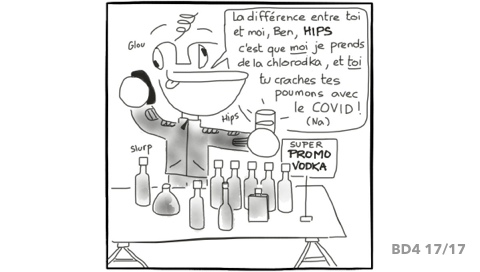 La différence entre toi
et moi, Ben, HIPS
c'est que moi je prends
de la chlorodka, et toi
tu craches tes
poumons avec
le COVID !
(Na)
Glou
Hips
Slurp
SUPER
PROMO
VODKA
BD4 17/17